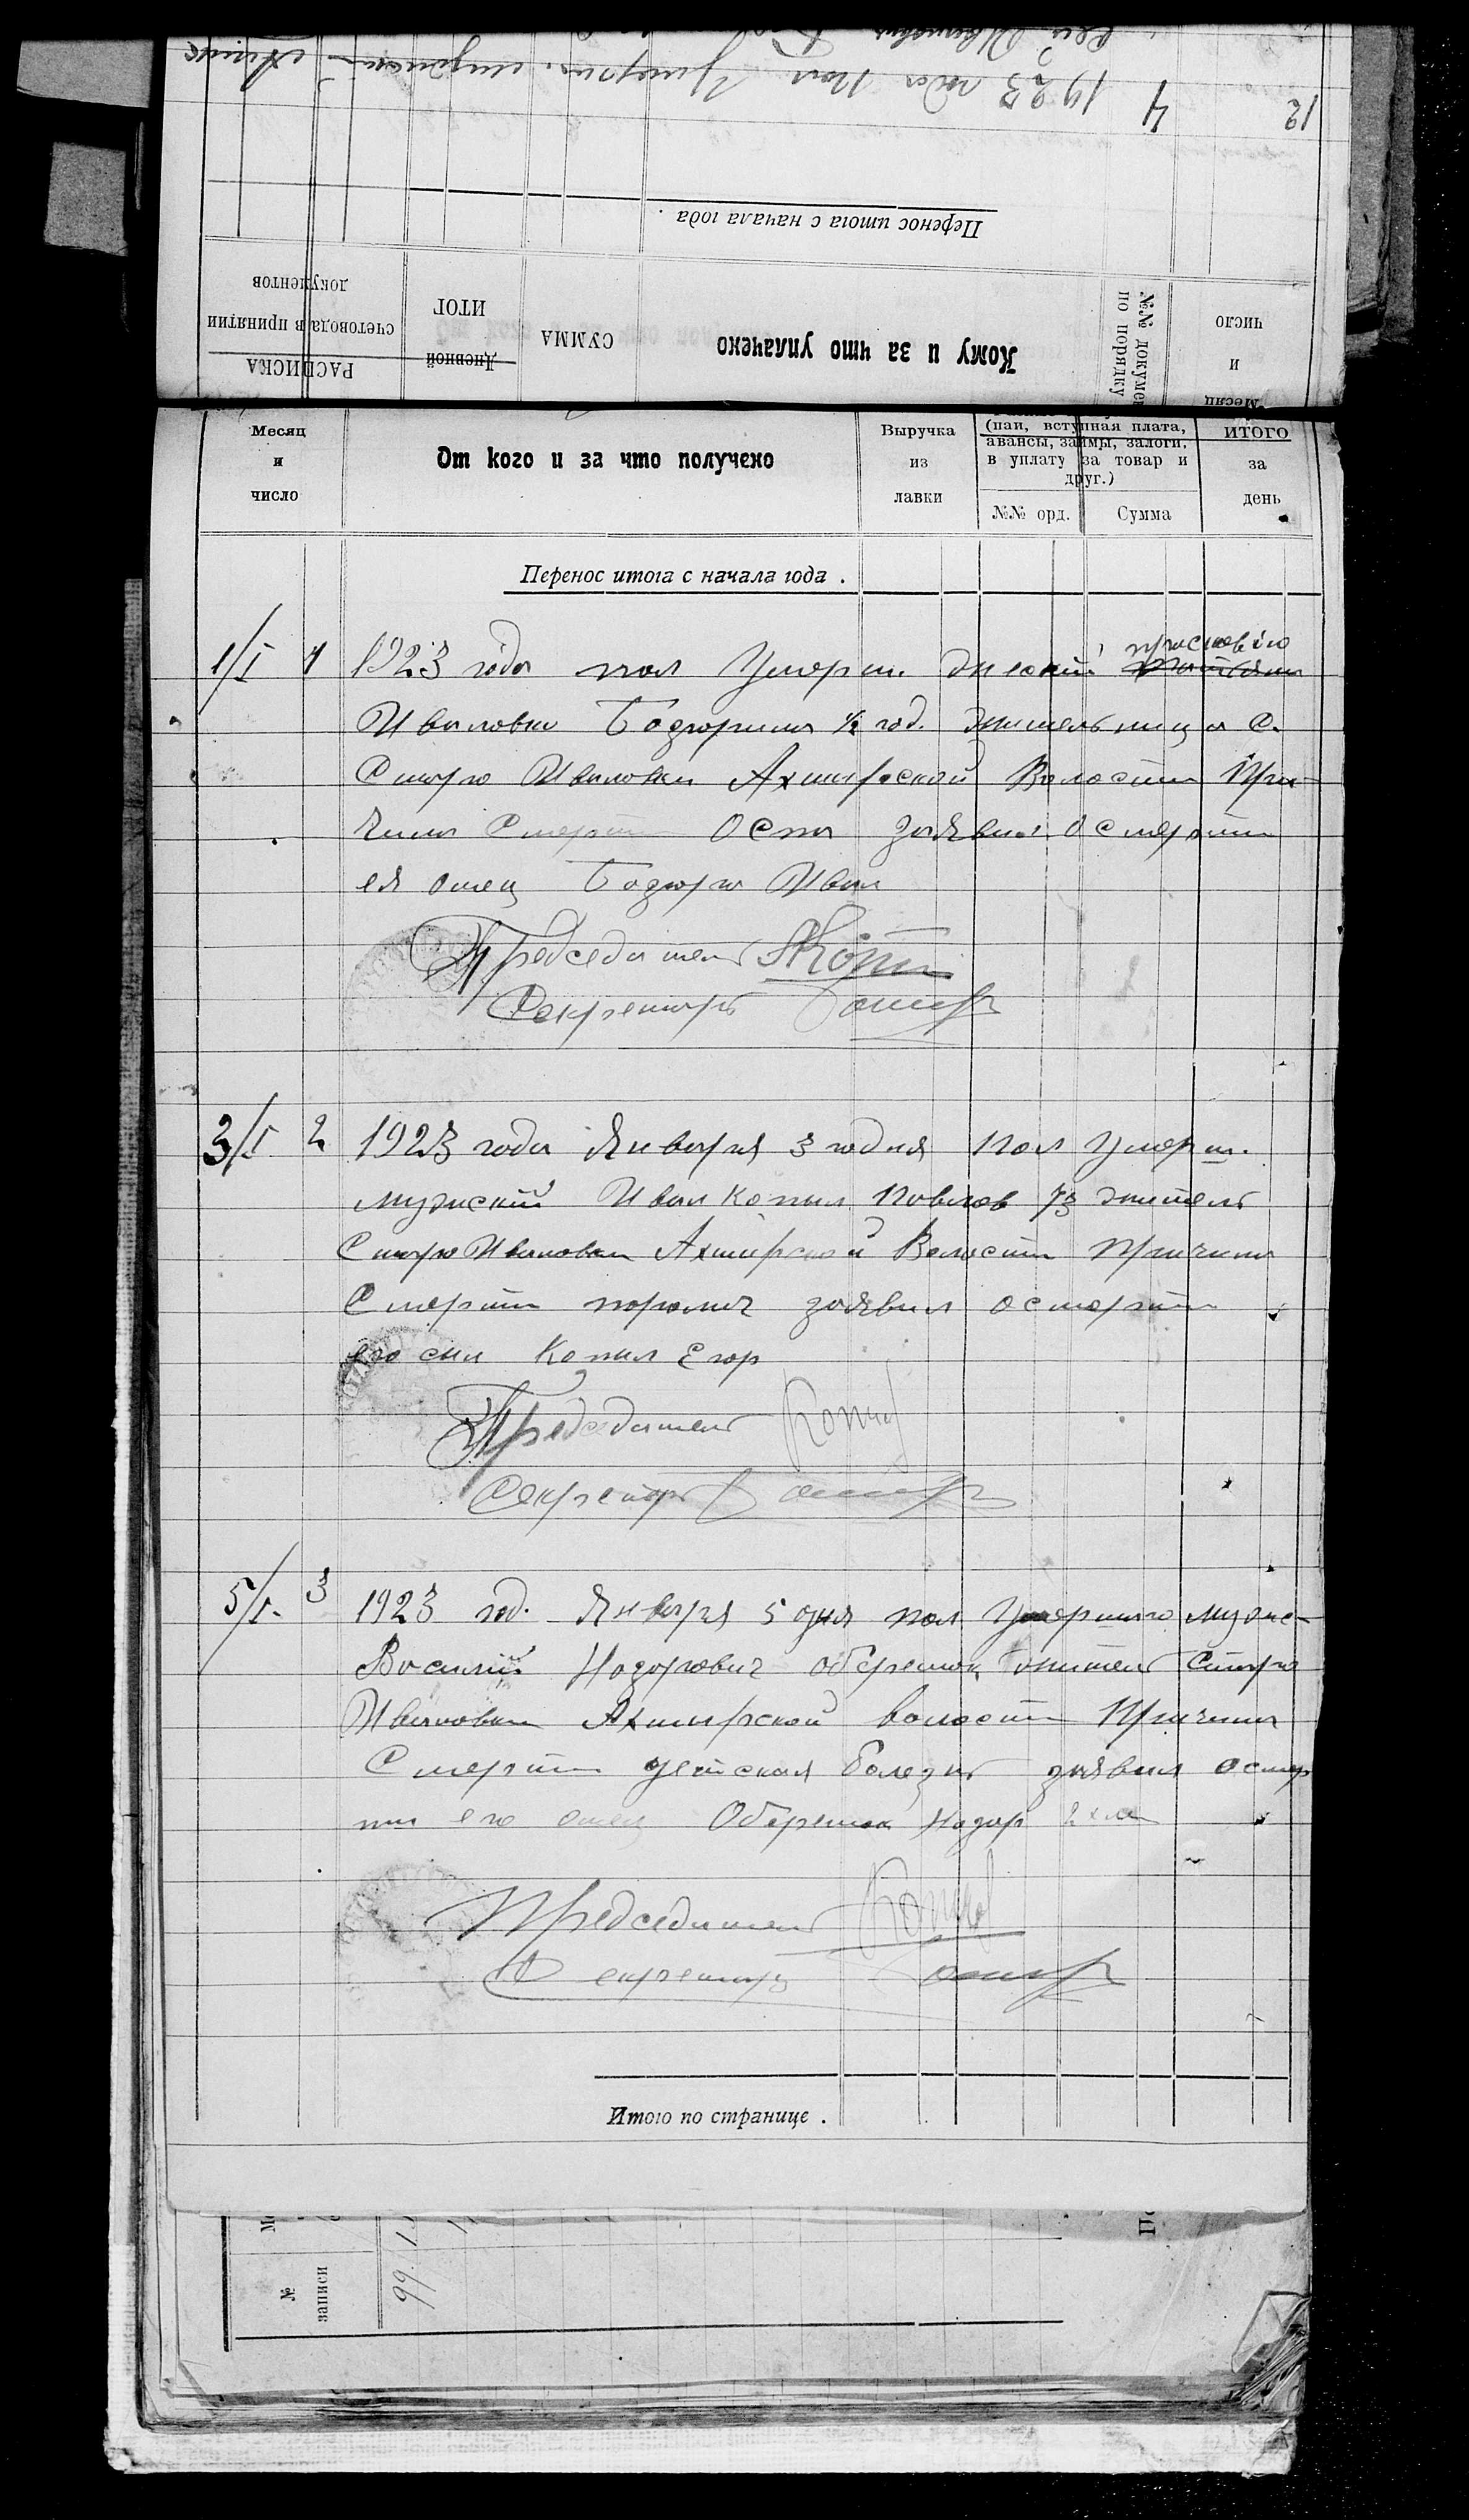 12 4 1923 года Пол Умерш.
Перенос итога с начала года .
Месяц
и
число
№№ докумен
по порядку
Кому и за что уплачено
СУММА
Дневной
ИТОГ
РАСПИСКА
счетовода в принятии
документов
Месяц
и
число
От кого и за что получено
Выручка
из
лавки
(паи, вступная плата,
авансы, займы, залоги,
в уплату за товар и
друг.)
№№ орд.
Сумма
ИТОГО
за
день
Перенос итога с начала года .
1/I 1 1923 года пол Умерш. Женский
Ивановна 1/2 год. жительница С.
Старо Ивановки Ахтырской Волости При-
чина Смерти Оспа заявил о смерти
ея отец Бодюра Иван
Председатель
Секретарь
3/I 2 1923 года Января 3 года дня Пол Умерш.
мужский Иван Копил Повлов 73 житель
Старо Ивановки Ахтырской Волости Причина
Смерти поролич заявил о смерти
его син Копил Егор
Председатель
Секретарь
5/I. 3 1923 год. Января 5 дня пол Умершаго мужс-
Восилий Нозорович житель Старо
Ивановки Ахтырской волости Причина
Смерти детская болезнь заявил о смер
ти его отец Нозар
Председатель
Секретарь
Итого по странице .
№
записи
99